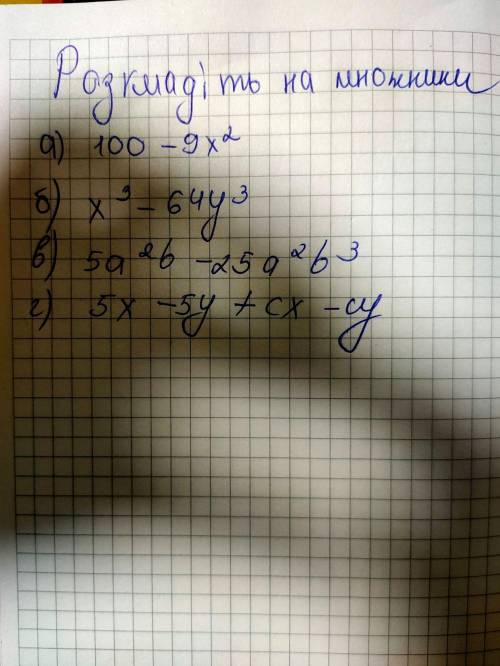 Розкладіть на множники
а) 100 - 9x²
б) x⁹ - 64y³
в) 5a²b - 25a²b³
г) 5x - 5y + cx - cy